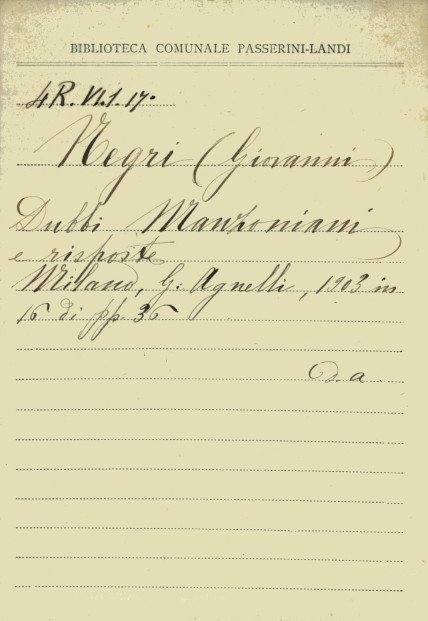 BIBLIOTECA COMUNALE PASSERINI-LANDI
4R.VI.1.17.
Negri (Giovanni)
Dubbi Manzoniani
e risposte
Milano, G. Agnelli, 1903 in
16 di pp. 36
D. a.